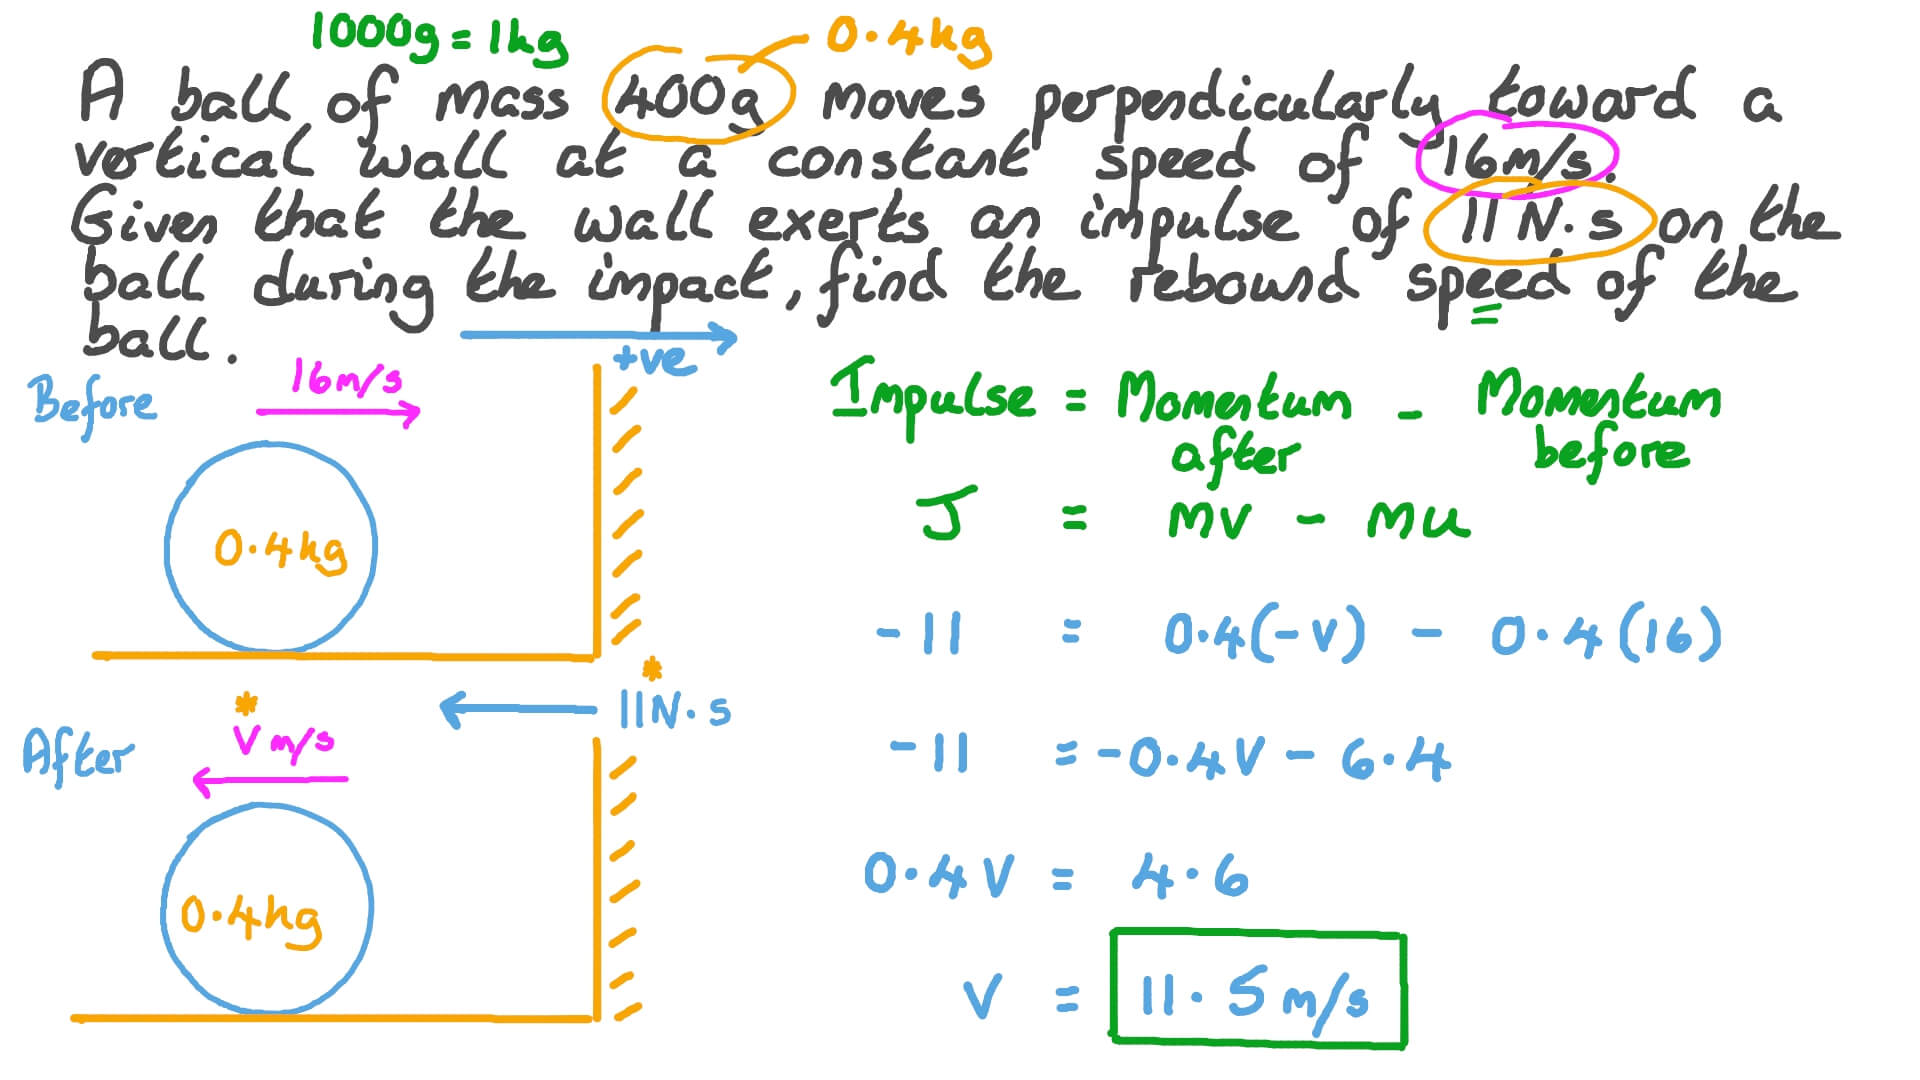 1000g = 1kg
0.4kg
A ball of mass 400g moves perpendicularly toward a
vertical wall at a constant speed of 16m/s.
Given that the wall exerts an impulse of 11 N.s on the
ball during the impact, find the rebound speed of the
ball.
+ve
Before
16m/s
0.4kg
*
11N.s
After
*
V m/s
0.4kg
Impulse = Momentum after - Momentum before
J = mv - mu
-11 = 0.4(-v) - 0.4(16)
-11 = -0.4V - 6.4
0.4V = 4.6
V = 11.5 m/s